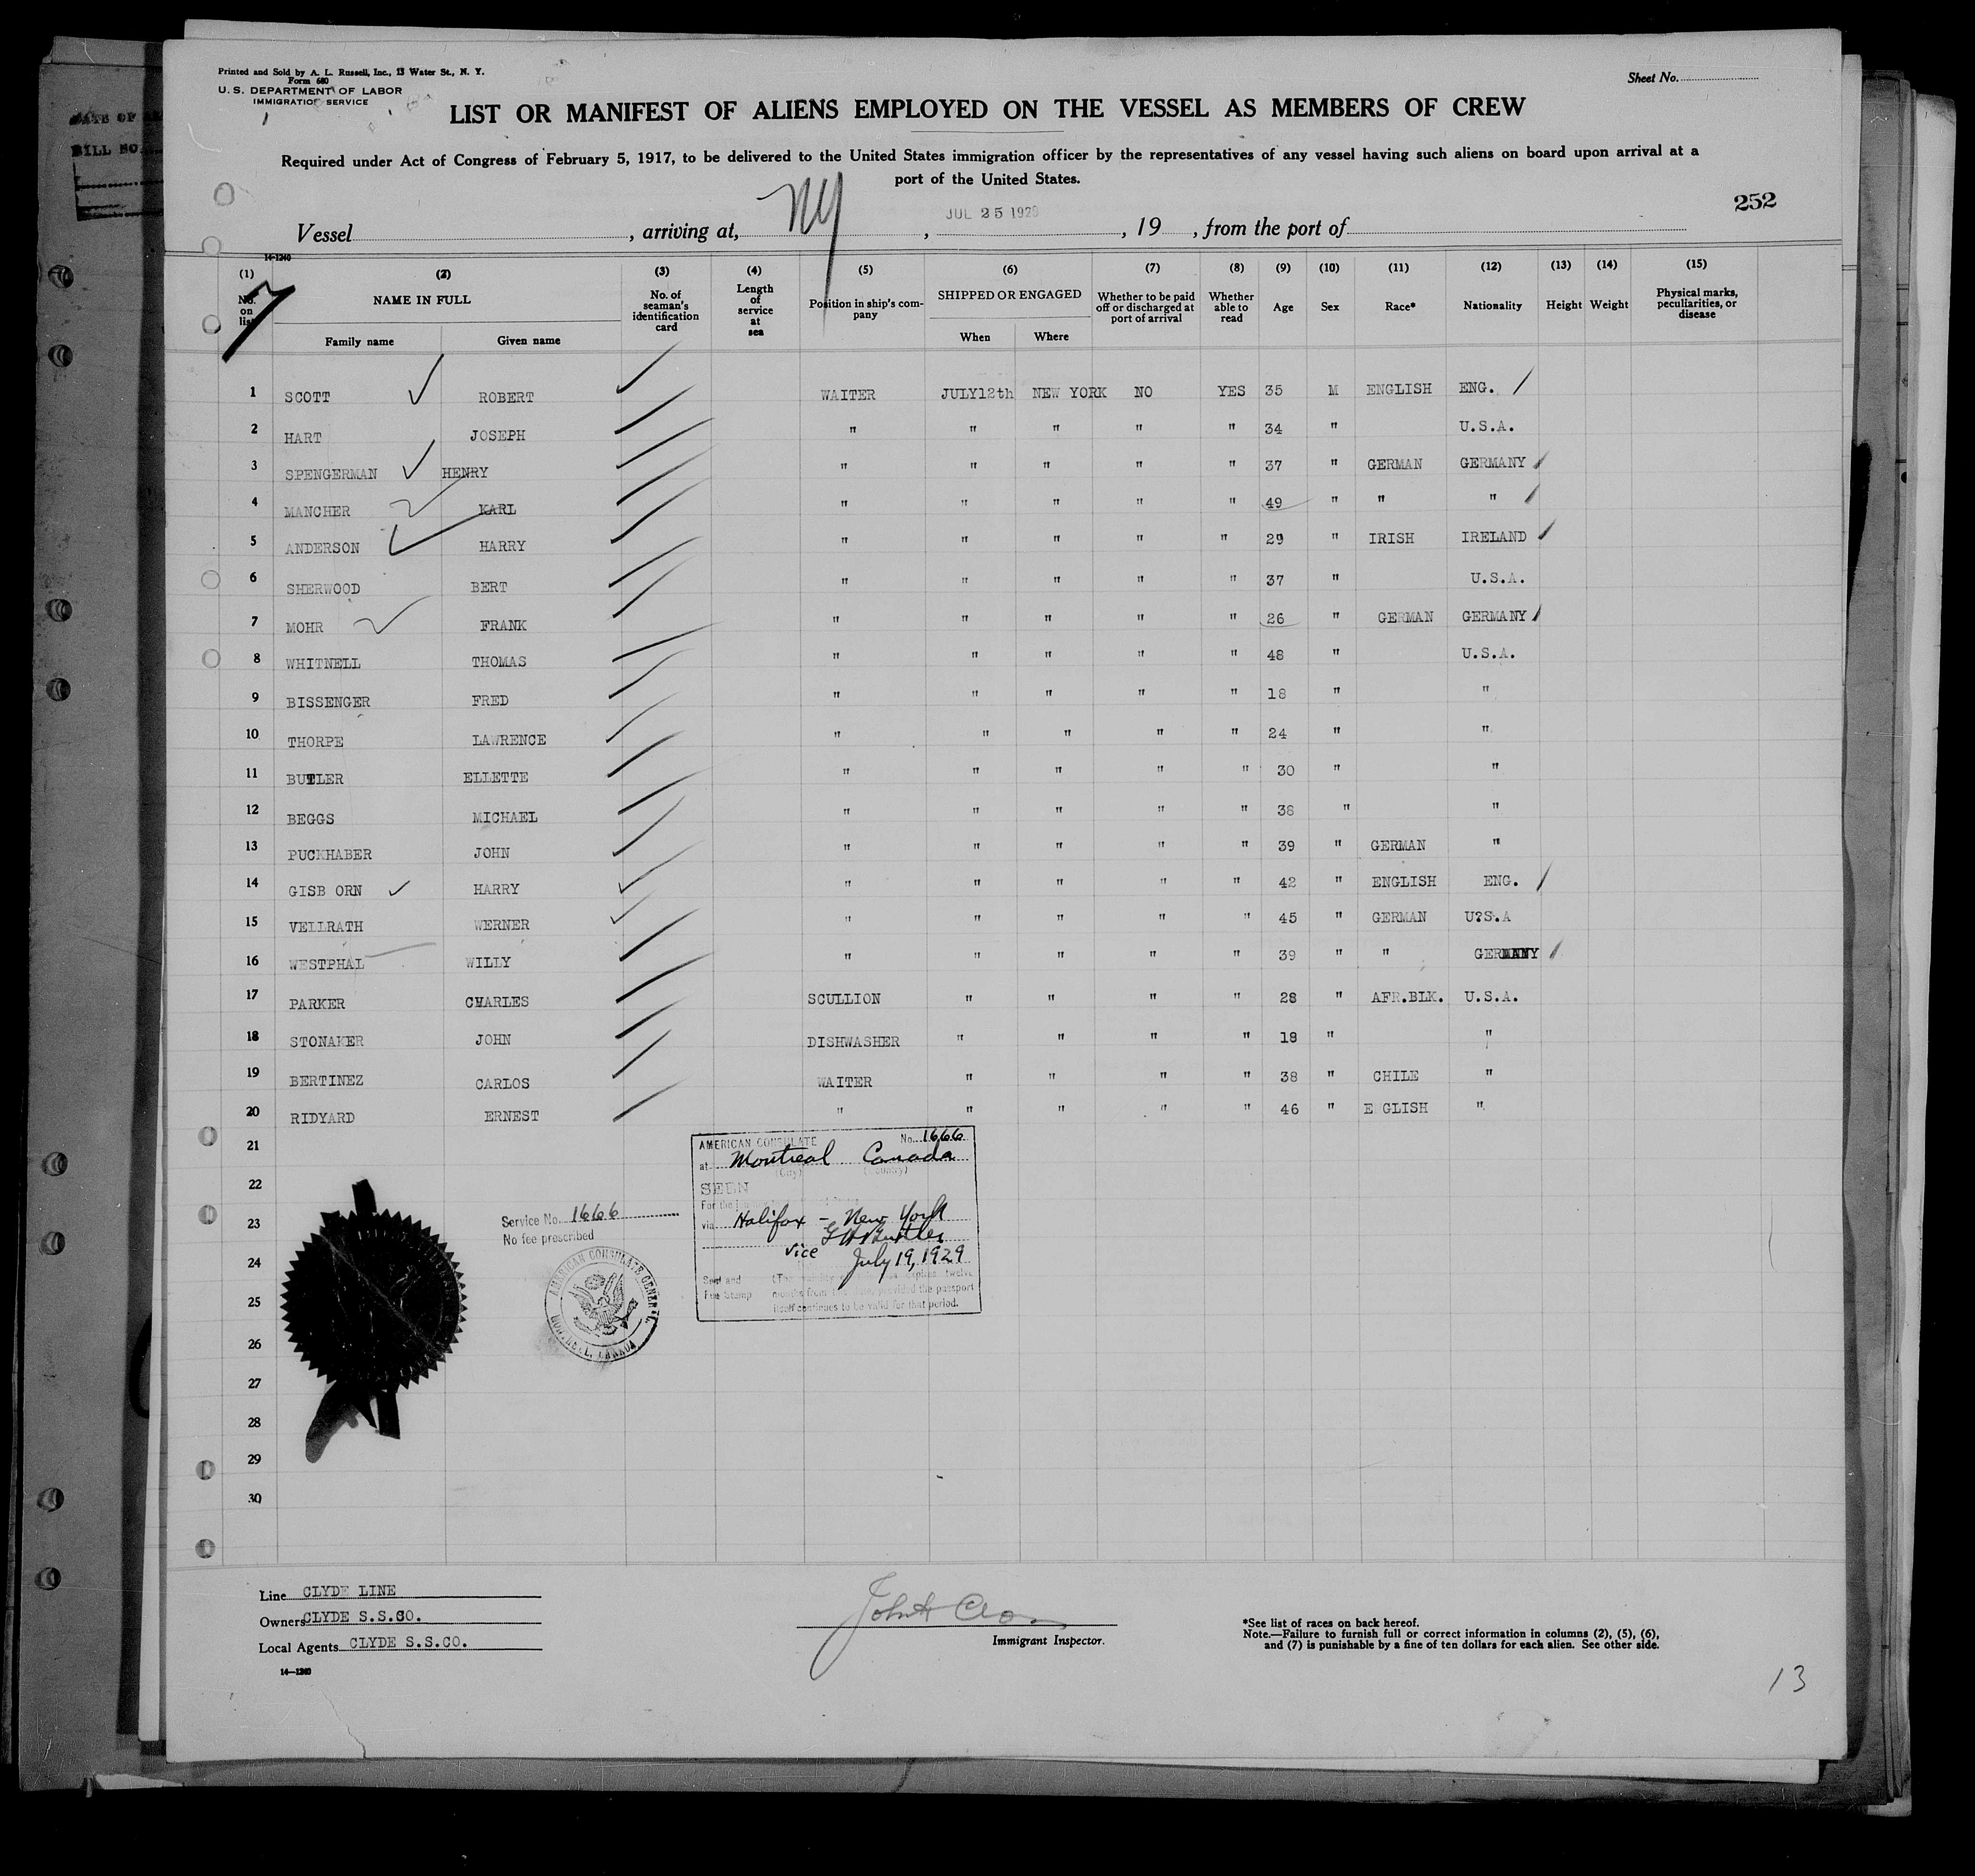 Printed and Sold by A. L. Russell, Inc., 13 Water St., N. Y.
Form 680
U. S. DEPARTMENT OF LABOR
IMMIGRATION SERVICE
Sheet No.
LIST OR MANIFEST OF ALIENS EMPLOYED ON THE VESSEL AS MEMBERS OF CREW
Required under Act of Congress of February 5, 1917, to be delivered to the United States immigration officer by the representatives of any vessel having such aliens on board upon arrival at a
port of the United States.
252
Vessel , arriving at, NY , JUL 25 1929 , 19 , from the port of
14-1240
(1) (2) (3) (4) (5) (6) (7) (8) (9) (10) (11) (12) (13) (14) (15)
No. on list NAME IN FULL Family name Given name No. of seaman's identification card Length of service at sea Position in ship's company SHIPPED OR ENGAGED When Where Whether to be paid off or discharged at port of arrival Whether able to read Age Sex Race* Nationality Height Weight Physical marks, peculiarities, or disease
1 SCOTT ROBERT WAITER JULY12th NEW YORK NO YES 35 M ENGLISH ENG.
2 HART JOSEPH " " " " " 34 " U.S.A.
3 SPENGERMAN HENRY " " " " " 37 " GERMAN GERMANY
4 MANCHER KARL " " " " " 49 " " "
5 ANDERSON HARRY " " " " " 29 " IRISH IRELAND
6 SHERWOOD BERT " " " " " 37 " U.S.A.
7 MOHR FRANK " " " " " 26 " GERMAN GERMANY
8 WHITNELL THOMAS " " " " " 48 " U.S.A.
9 BISSENGER FRED " " " " " 18 " "
10 THORPE LAWRENCE " " " " " 24 " "
11 BUTLER ELLETTE " " " " " 30 " "
12 BEGGS MICHAEL " " " " " 38 " "
13 PUCKHABER JOHN " " " " " 39 " GERMAN "
14 GISB ORN HARRY " " " " " 42 " ENGLISH ENG.
15 VELLRATH WERNER " " " " " 45 " GERMAN U?S.A
16 WESTPHAL WILLY " " " " " 39 " " GERMANY
17 PARKER CHARLES SCULLION " " " " 28 " AFR.BLK. U.S.A.
18 STONAKER JOHN DISHWASHER " " " " 18 " "
19 BERTINEZ CARLOS WAITER " " " " 38 " CHILE "
20 RIDYARD ERNEST " " " " " 46 " E GLISH "
21
22
23
24
25
26
27
28
29
30
AMERICAN CONSULATE No. 1666
at Montreal Canada
(City) (Country)
SEEN
For the
via Halifax - New York
vice July 19, 1929
Seal and
Fee Stamp
twelve
months from provided the passport
itself continues to be valid for that period.
Service No. 1666
No fee prescribed
AMERICAN CONSULATE GENERAL
MONTREAL, CANADA
Line CLYDE LINE
Owners CLYDE S.S.CO.
Local Agents CLYDE S.S.CO.
14—1240
Immigrant Inspector.
*See list of races on back hereof.
Note.—Failure to furnish full or correct information in columns (2), (5), (6),
and (7) is punishable by a fine of ten dollars for each alien. See other side.
13